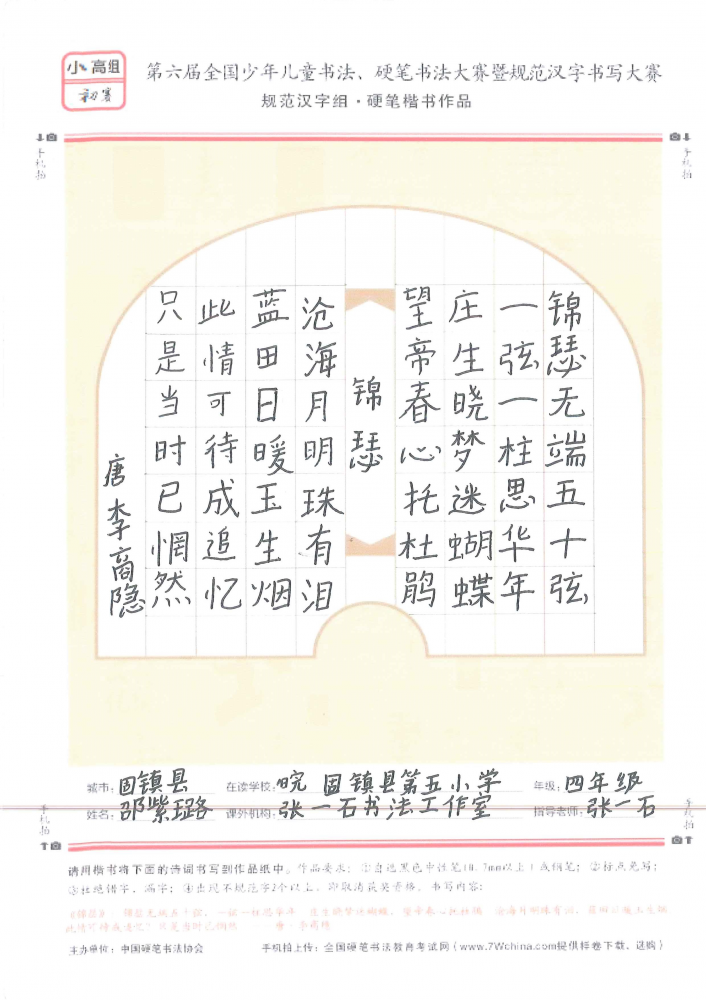 小高组
初赛
第六届全国少年儿童书法、硬笔书法大赛暨规范汉字书写大赛
规范汉字组·硬笔楷书作品
手机拍
手机拍
锦瑟无端五十弦
一弦一柱思华年
庄生晓梦迷蝴蝶
望帝春心托杜鹃
锦瑟
沧海月明珠有泪
蓝田日暖玉生烟
此情可待成追忆
只是当时已惘然
唐 李商隐
城市：固镇县 在读学校：皖 固镇县第五小学 年级：四年级
姓名：邵紫璐 课外机构：张一石书法工作室 指导老师：张一石
手机拍
手机拍
请用楷书将下面的诗词书写到作品纸中。作品要求：①自选黑色中性笔(0.7mm以上)或钢笔；②标点免写；
③杜绝错字、漏字；④出现不规范字2个以上，即取消获奖资格。书写内容：
《锦瑟》 锦瑟无端五十弦，一弦一柱思华年。庄生晓梦迷蝴蝶，望帝春心托杜鹃。沧海月明珠有泪，蓝田日暖玉生烟。
此情可待成追忆？只是当时已惘然。 唐·李商隐
主办单位：中国硬笔书法协会 手机拍上传：全国硬笔书法教育考试网（www.7Wchina.com提供样卷下载、选购）